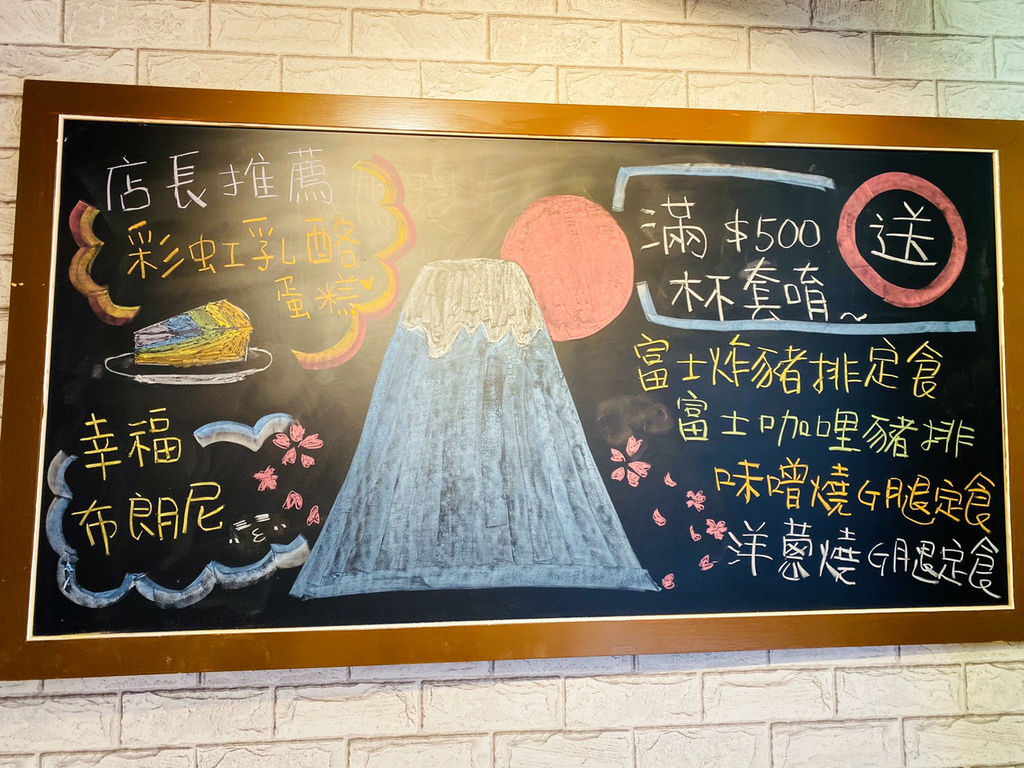 店長推薦
彩虹乳酪
蛋糕
幸福
布朗尼
滿$500
送
杯套唷~
富士炸豬排定食
富士咖哩豬排
味噌燒G腿定食
洋蔥燒G腿定食